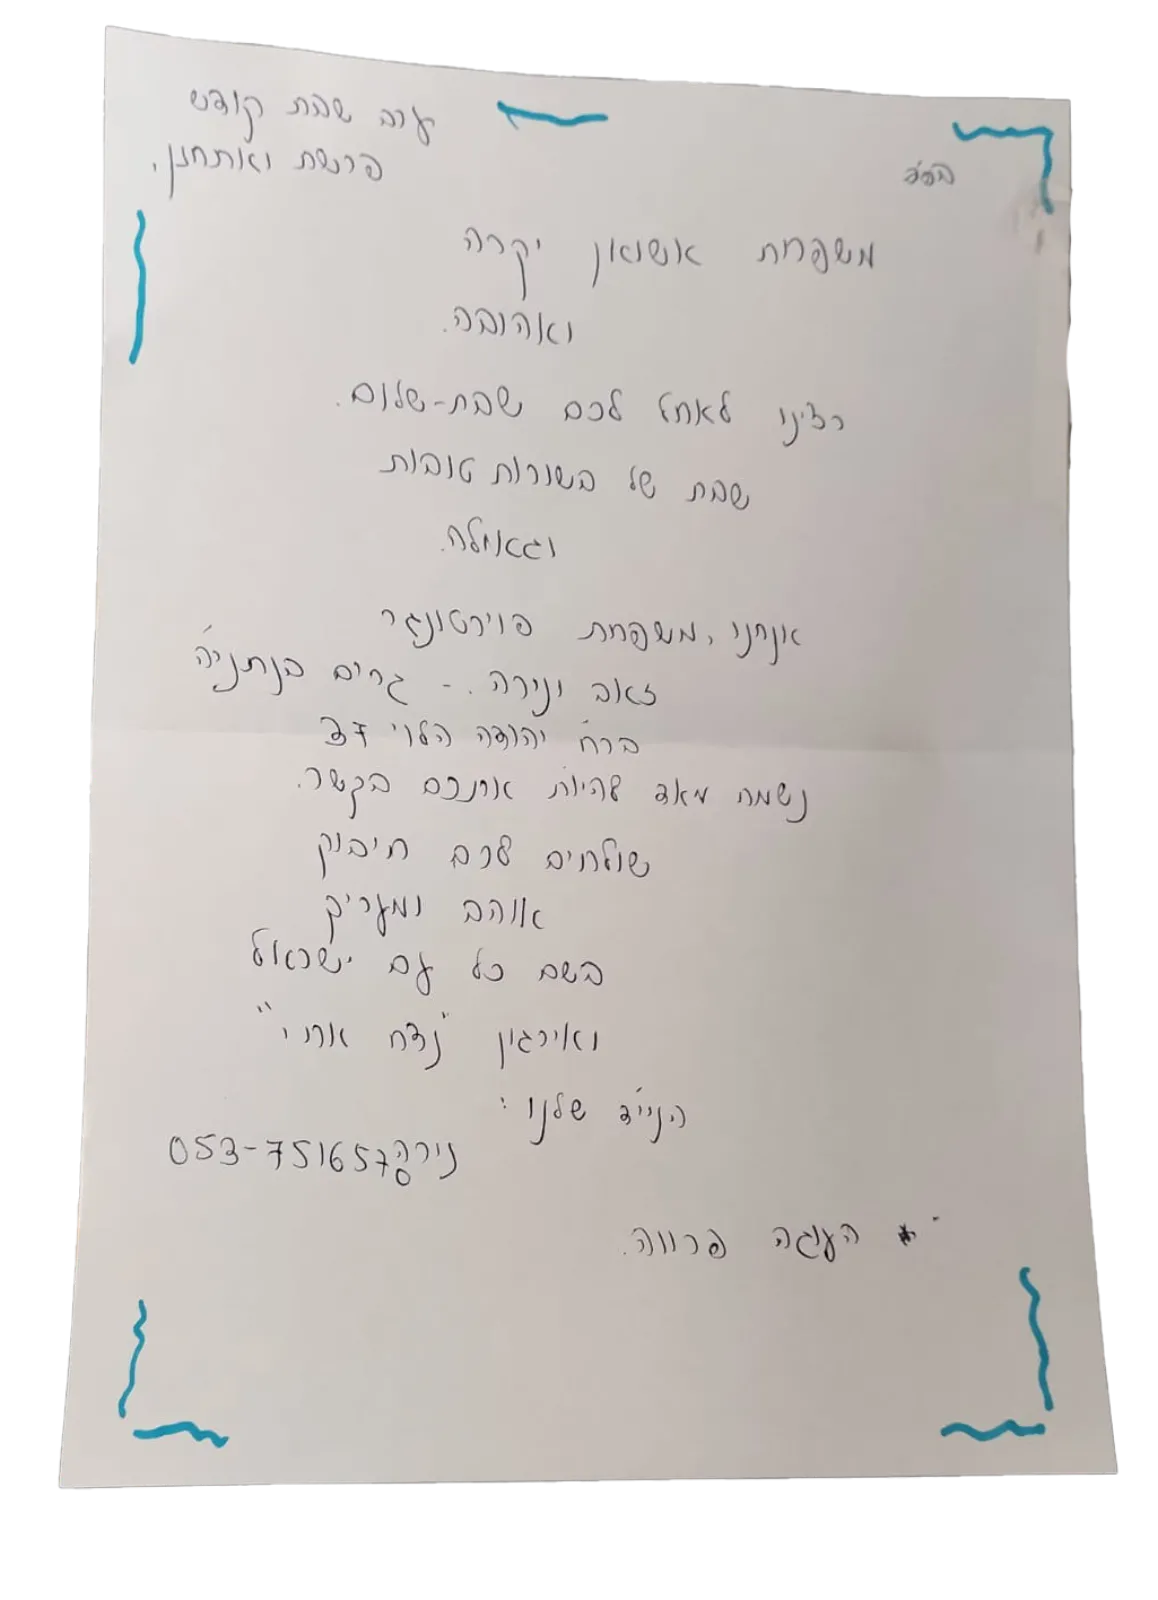 בס"ד
ערב שבת קודש
פרשת ואתחנן.
משפחת אשואל יקרה
ואהובה.
רצינו לאחל לכם שבת-שלום.
שבת של בשורות טובות
וגאולה.
אנחנו, משפחת פוירטונגר
זאב ונירה. - גרים בנתניה
ברח' יהודה הלוי 37
נשמח מאד להיות אתכם בקשר.
שולחים לכם חיבוק
אוהב ומעריק
בשם כל עם ישראל
ואירגון "נצח ארי"
הנייד שלנו:
נירה 053-751657
* העוגה פרווה.